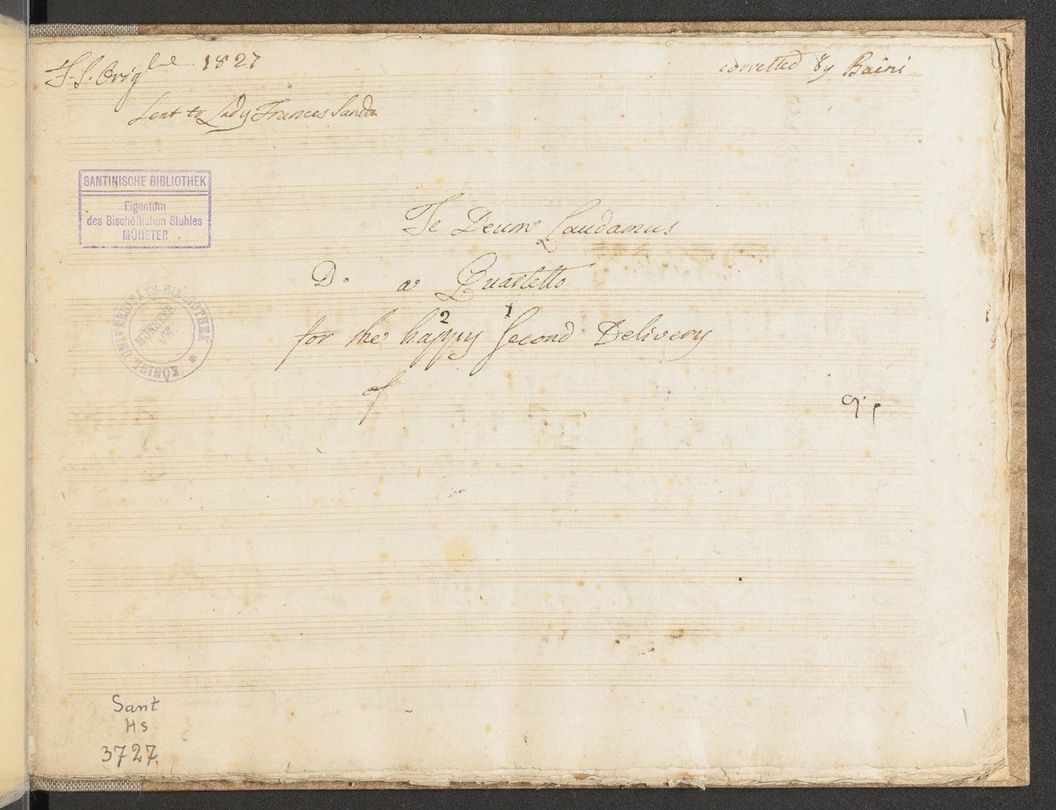 F. J. Orig<sup>le</sup> 1827
corretted by Baini
Sent to Lady Frances Sandn
SANTINISCHE BIBLIOTHEK
Eigentum
des Bischöflichen Stuhles
MÜNSTER
Te Deum Laudamus
D. a Quartetto
2 1
for the happy Second Delivery
of
KÖNIGL. UNIVERSITÄTS-BIBLIOTHEK *
MÜNSTER
Sant
Hs
3727.